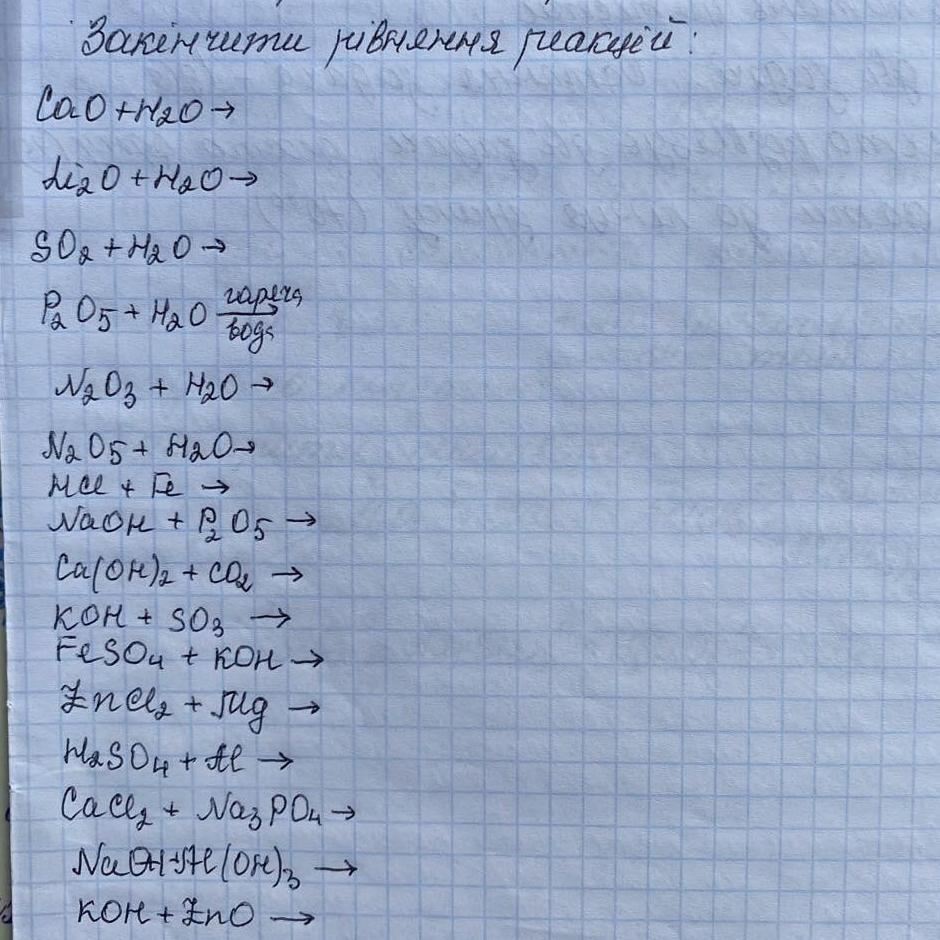 Закінчити рівняння реакцій:
CaO + H2O →
Li2O + H2O →
SO2 + H2O →
P2O5 + H2O гаряча вода →
N2O3 + H2O →
N2O5 + H2O →
HCl + Fe →
NaOH + P2O5 →
Ca(OH)2 + CO2 →
KOH + SO3 →
FeSO4 + KOH →
ZnCl2 + Mg →
H2SO4 + Al →
CaCl2 + Na3PO4 →
NaOH + Al(OH)3 →
KOH + ZnO →